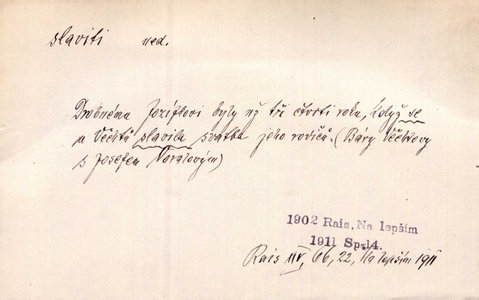 slaviti ned.
Drobnému Jozífkovi byly už tři čtvrti roku, když se
u Věchtů slavila svatba jeho rodičů. (Báry Věchtovy
s Josefem
1902 Rais, Na lepším
1911 Sp.14.
Rais 66, 22, Na lepším 1911